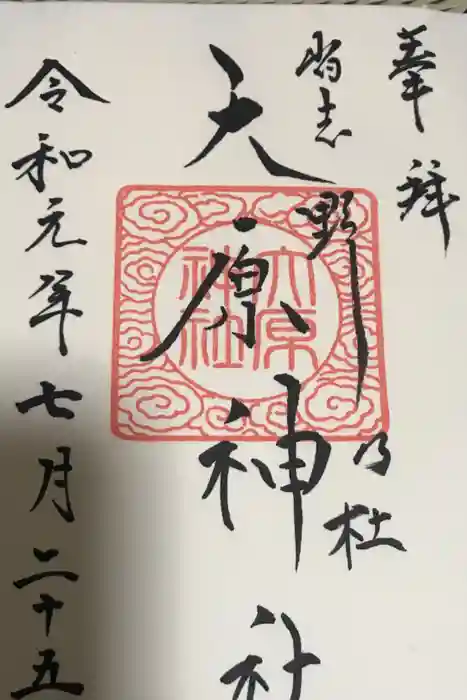 奉拝
習志野乃杜
大原神社
令和元年七月二十五
大原
神社